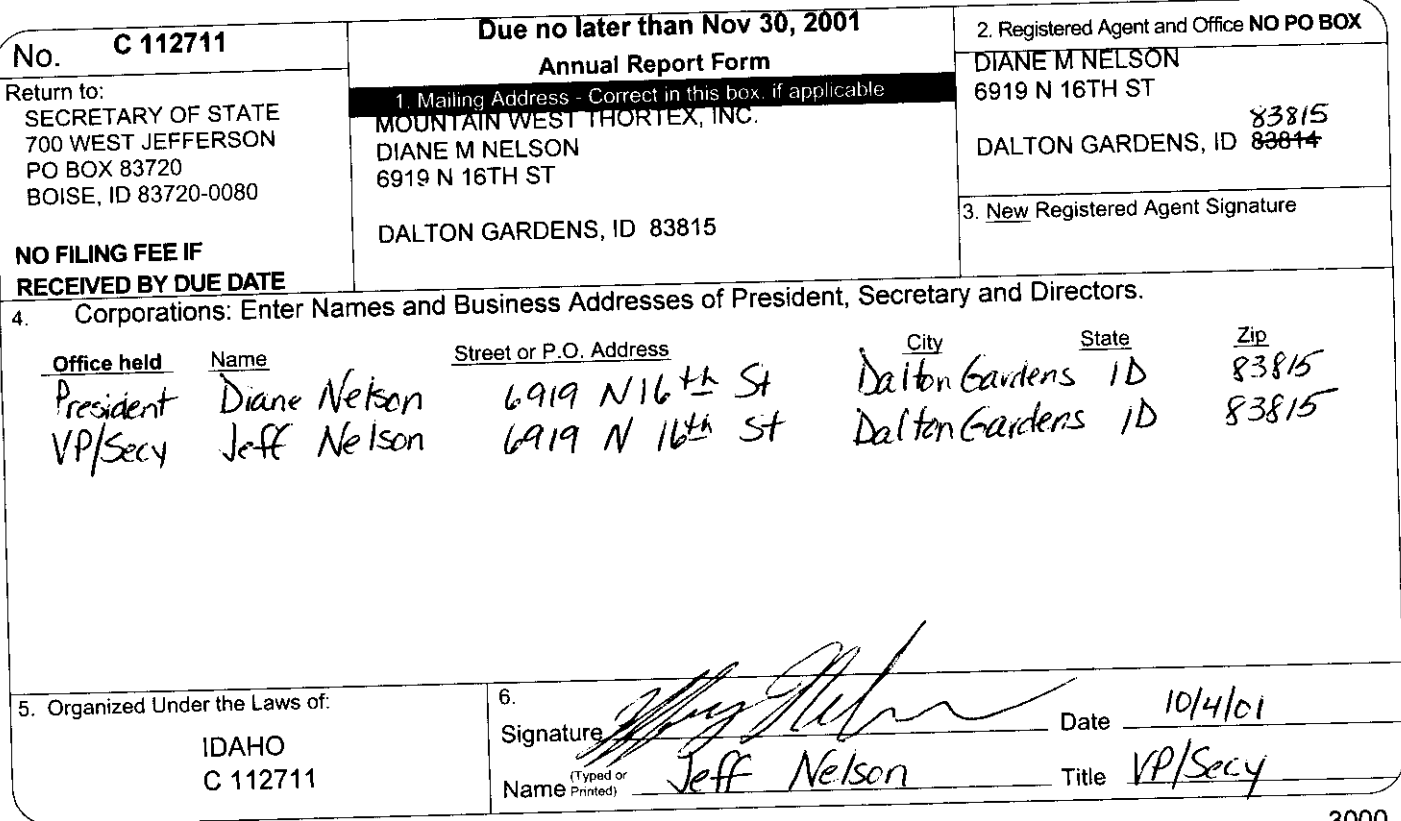 No. C 112711
Return to:
SECRETARY OF STATE
700 WEST JEFFERSON
PO BOX 83720
BOISE, ID 83720-0080
NO FILING FEE IF
RECEIVED BY DUE DATE
Due no later than Nov 30, 2001
Annual Report Form
1. Mailing Address - Correct in this box, if applicable
MOUNTAIN WEST THORTEX, INC.
DIANE M NELSON
6919 N 16TH ST
DALTON GARDENS, ID 83815
2. Registered Agent and Office NO PO BOX
DIANE M NELSON
6919 N 16TH ST
83815
DALTON GARDENS, ID 83814
3. New Registered Agent Signature
4. Corporations: Enter Names and Business Addresses of President, Secretary and Directors.
Office held Name Street or P.O. Address City State Zip
President Diane Nelson 6919 N 16th St Dalton Gardens ID 83815
VP/Secy Jeff Nelson 6919 N 16th St Dalton Gardens ID 83815
5. Organized Under the Laws of:
IDAHO
C 112711
6.
Signature Date 10/4/01
Name (Typed or Printed) Jeff Nelson Title VP/Secy
3000